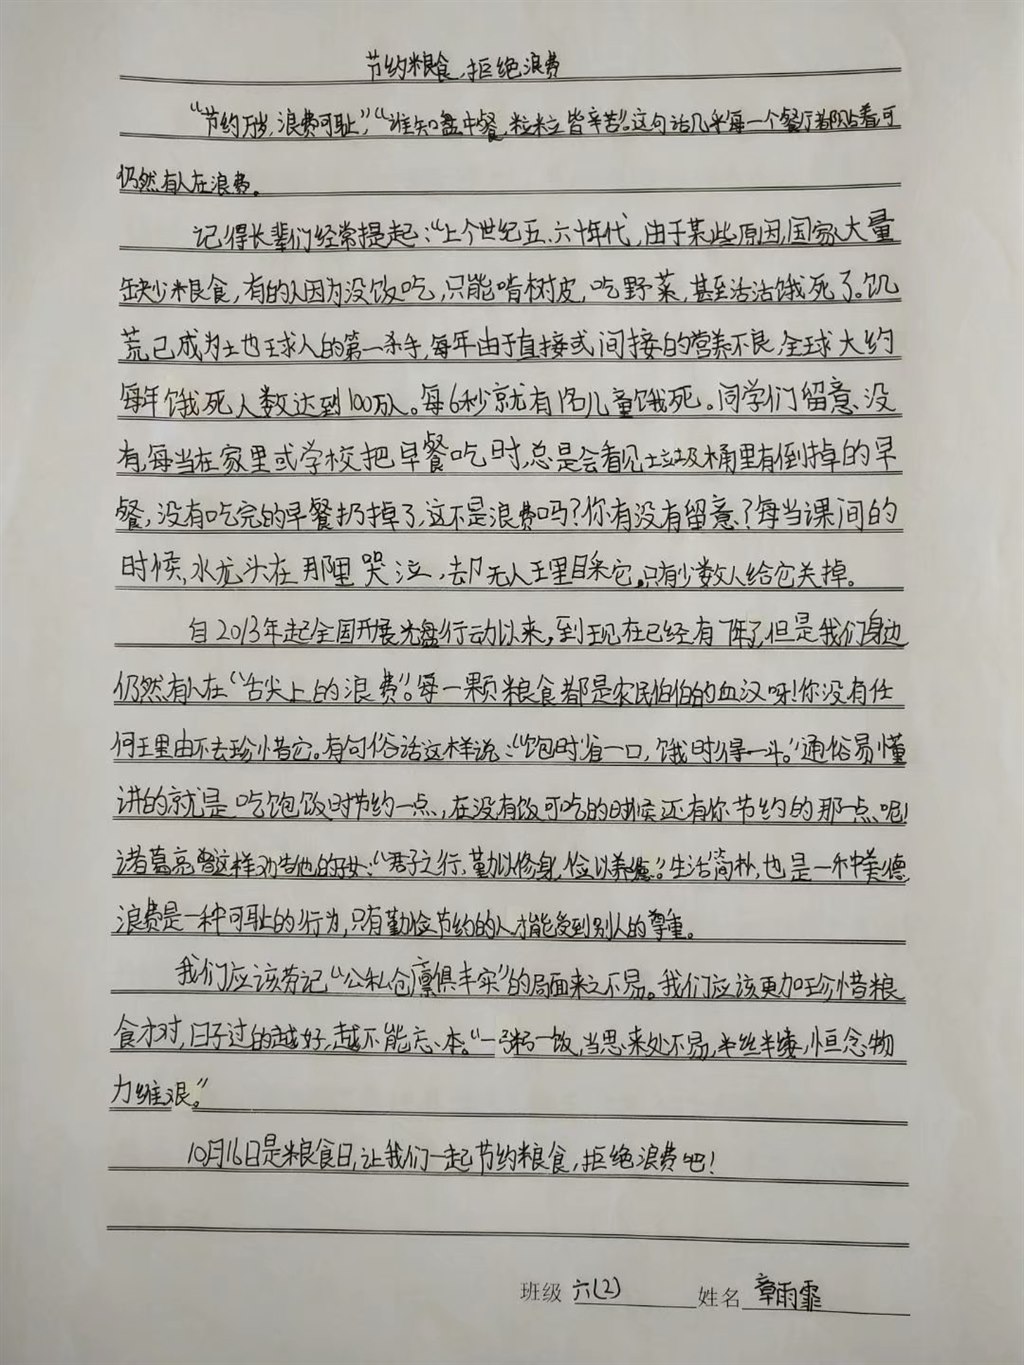 节约粮食，拒绝浪费
“节约万岁，浪费可耻”，“谁知盘中餐，粒粒皆辛苦”。这句话几乎每一个餐厅都贴着可
仍然有人在浪费。
记得长辈们经常提起：“上个世纪五、六十年代，由于某些原因，国家大量
缺少粮食，有的人因为没饭吃，只能啃树皮，吃野菜，甚至活活饿死了。饥
荒已成为土也球人的第一杀手，每年由于直接或间接的营养不良，全球大约
每年饿死人数达到100万人。每6秒就有1名儿童饿死。同学们留意没
有，每当在家里或学校把早餐吃时，总是会看见垃圾桶里有倒掉的早
餐，没有吃完的早餐扔掉了，这不是浪费吗？你有没有留意？每当课间的
时候，水龙头在那里哭泣，却无人理睬它。只有少数人给它关掉。
自2013年起全国开展光盘行动以来，到现在已经有7年了，但是我们身边
仍然有人在“舌尖上的浪费”。每一颗粮食都是农民伯伯的血汉呀！你没有任
何理由不去珍惜它。有句俗话这样说：“饱时省一口，饿时得一斗。”通俗易懂
讲的就是吃饱饭时节约一点，在没有饭可吃的时候还有你节约的那一点呢！
诸葛亮曾这样劝告他的子女：“君子之行，勤以修身，俭以养德”。生活简朴，也是一种美德，
浪费是一种可耻的行为，只有勤俭节约的人，才能受到别人的尊重。
我们应该劳记“公私仓廪俱丰实”的局面来之不易。我们应该更加珍惜粮
食才对，日子过的越好，越不能忘本。“一粥一饭，当思来处不易，半丝半缕，恒念物
力维艰。”
10月16日是粮食日，让我们一起节约粮食，拒绝浪费吧！
班级 六(2) 姓名 章雨霏